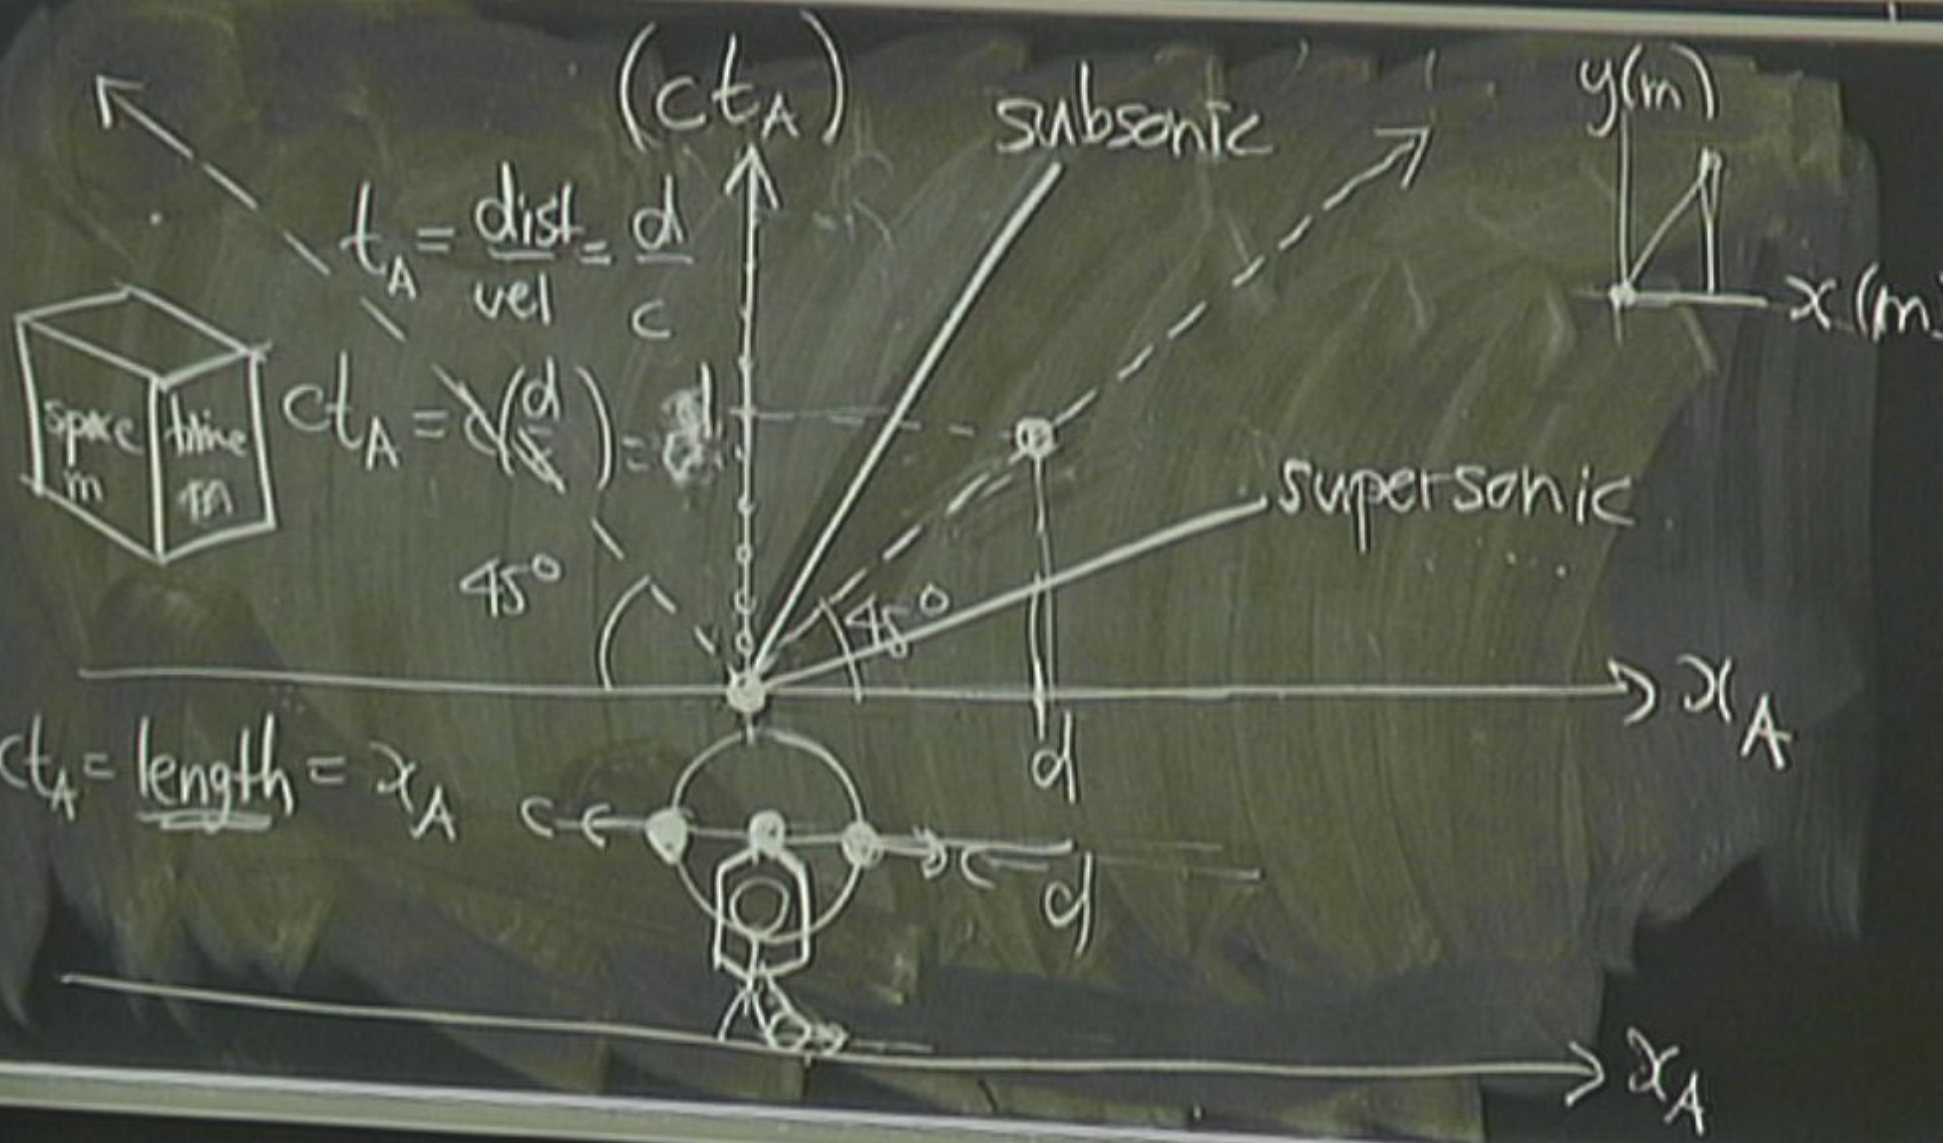 (ctA)
subsonic
y(m)
tA = dist/vel = d/c
x(m)
space m
time m
ctA = c(d/c) = d
supersonic
45°
45°
xA
d
ctA = length = xA
c
c
d
xA